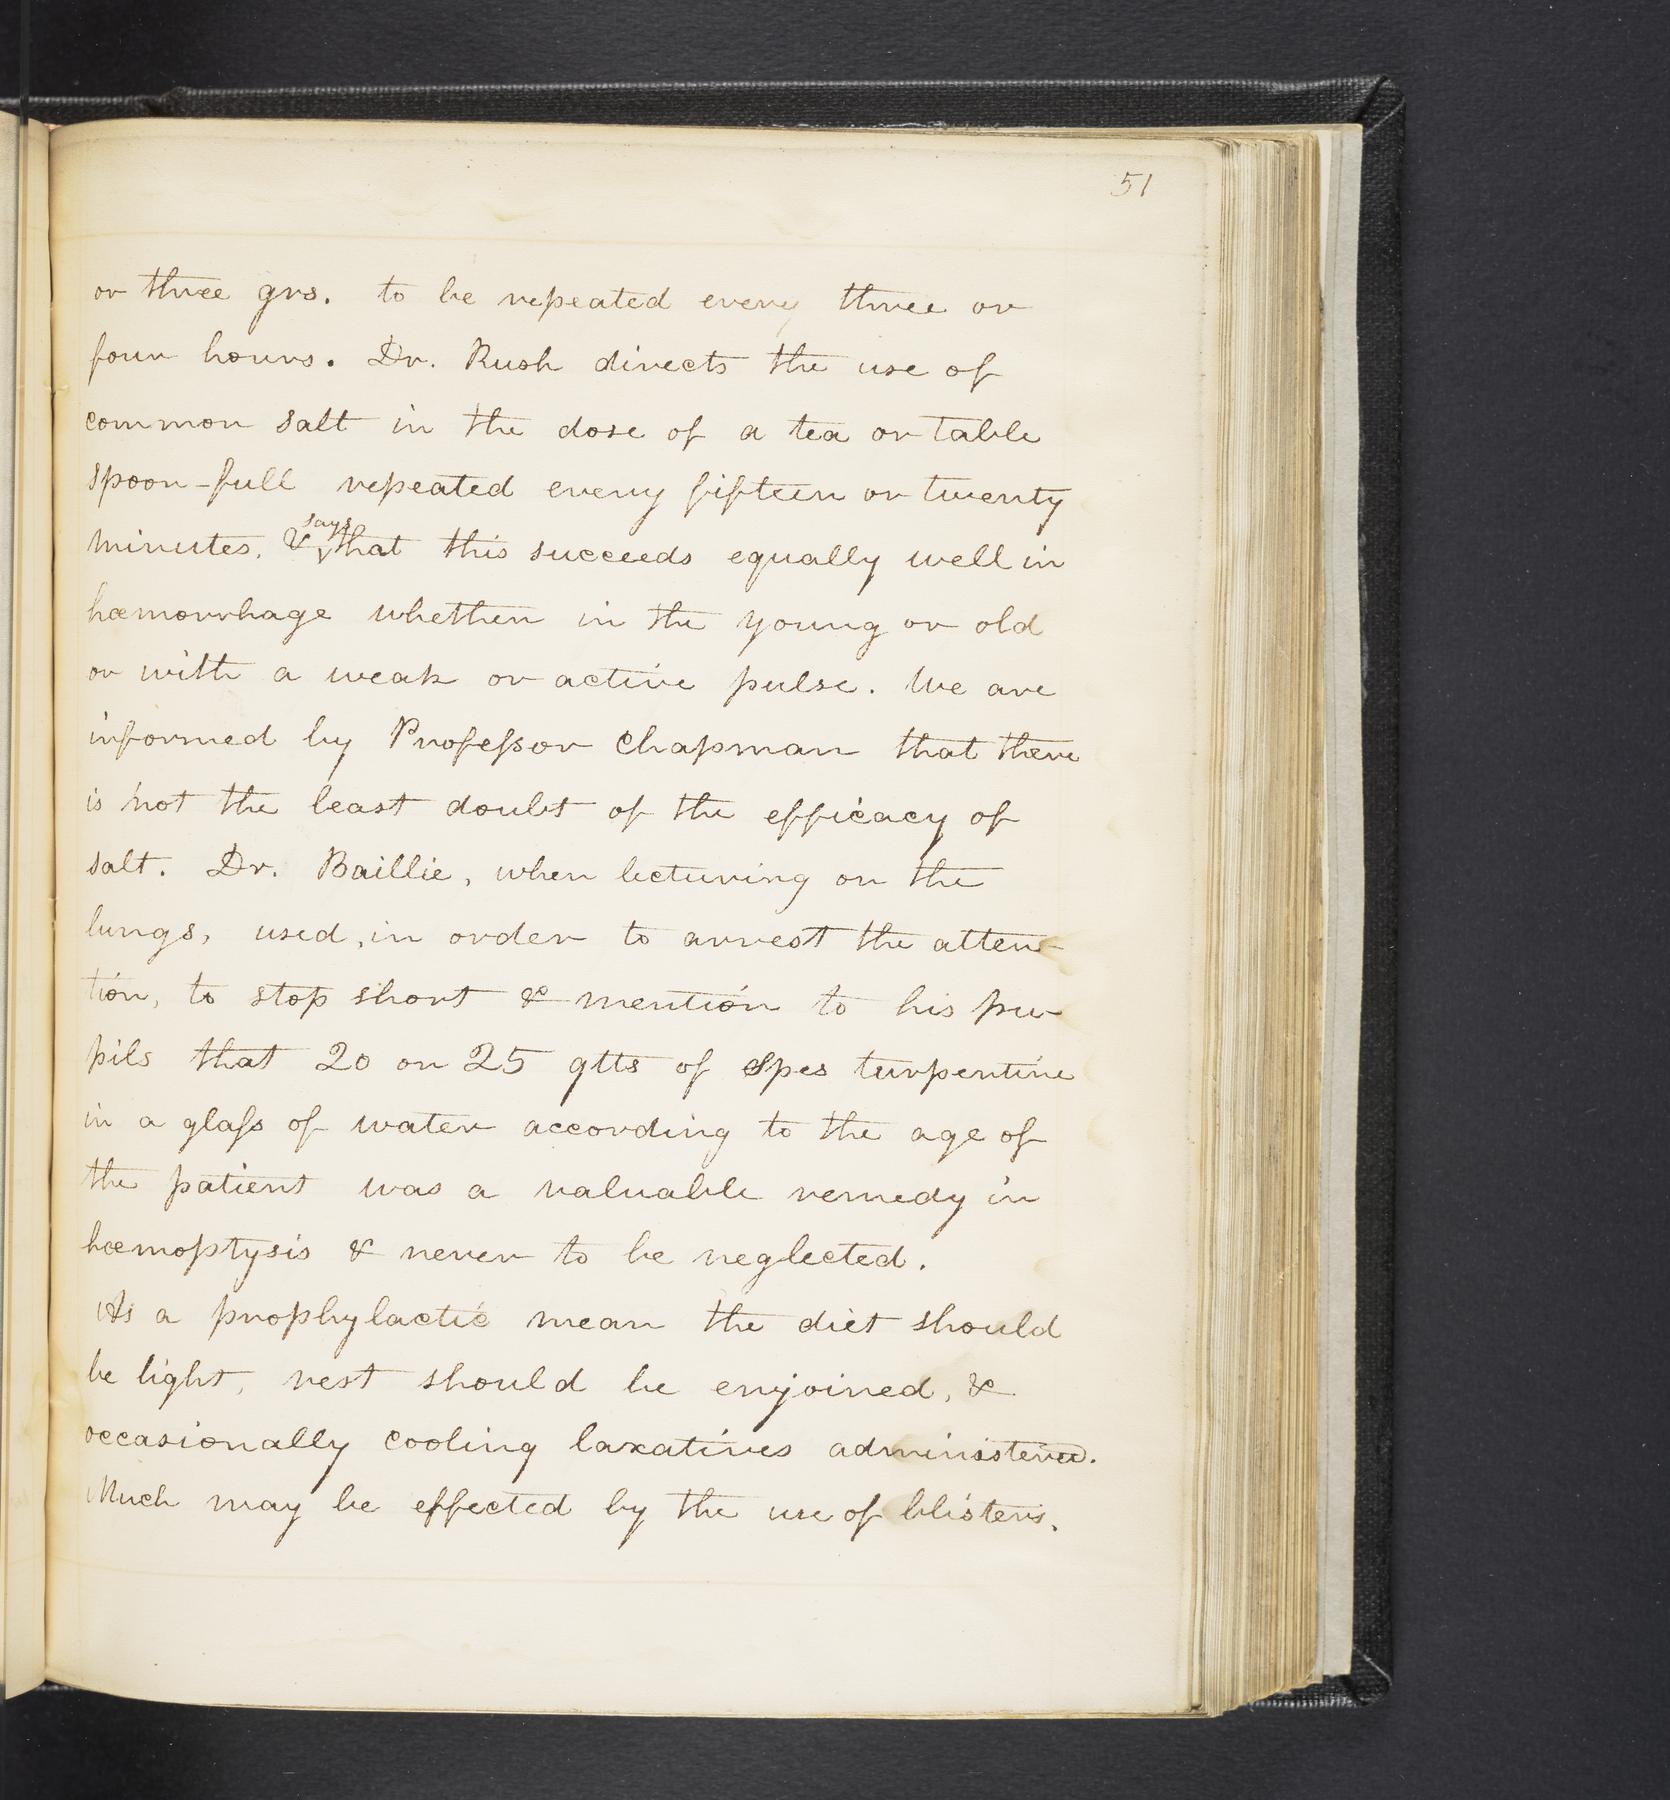 51
or three grs. to be repeated every three or
four hours. Dr. Rush directs the use of
common salt in the dose of a tea or table
spoon-full repeated every fifteen or twenty
minutes, & says that this succeeds equally well in
hæmorrhage whether in the young or old
or with a weak or active pulse. We are
informed by Professor Chapman that there
is not the least doubt of the efficacy of
salt. Dr. Baillie, when lecturing on the
lungs, used, in order to arrest the atten-
tion, to stop short & mention to his pu-
pils that 20 or 25 gtts of Spes turpentine
in a glass of water according to the age of
the patient was a valuable remedy in
hæmoptysis & never to be neglected.
As a prophylactic mean the diet should
be light, rest should be enjoined, &
occasionally cooling laxatives administered.
Much may be effected by the use of blisters.